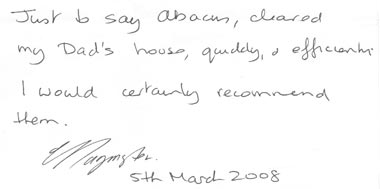 Just to say abacus, cleared
my Dad's house, quickly, & efficiently.
I would certainly recommend
them.
5th March 2008